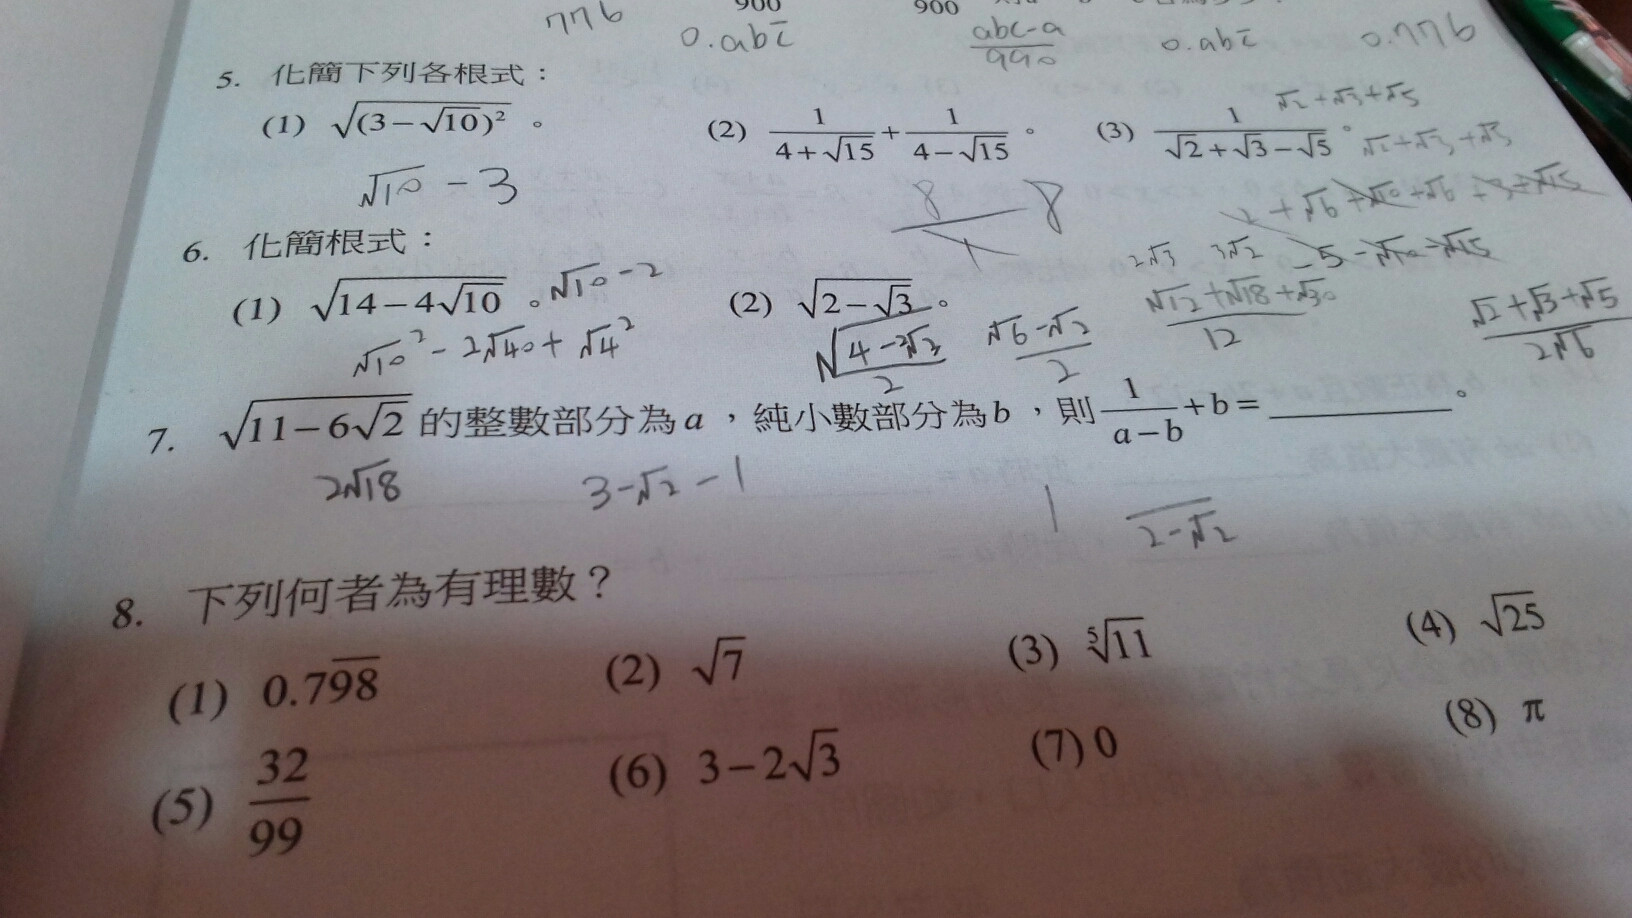 776 900 900
0.abc̅ abc-a/990 0.abc̅ 0.776
5. 化簡下列各根式：
(1) √(3−√10)² 。 (2) 1/(4+√15) + 1/(4−√15) 。 (3) 1/(√2+√3−√5) 。 √2+√3+√5
√2+√3+√5
√10 − 3 8/1 8 2+√6+√10+√6+3+√15
6. 化簡根式：
2√3 3√2 −5−√10−√15
(1) √(14−4√10) 。 √10−2 (2) √(2−√3) 。 (√12+√18+√30)/12 (√2+√3+√5)/2√6
√10²−2√40+√4² √((4−2√3)/2) (√6−√2)/2
7. √(11−6√2) 的整數部分為a，純小數部分為b，則 1/(a−b) + b = ________。
2√18 3−√2−1 1 /(2−√2)
8. 下列何者為有理數？
(1) 0.79̅8̅ (2) √7 (3) ⁵√11 (4) √25
(5) 32/99 (6) 3−2√3 (7) 0 (8) π